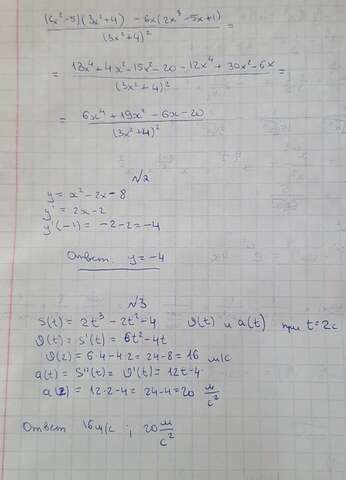 (6x²-5)(3x²+4) - 6x(2x³-5x+1) =
(3x²+4)²
= 18x⁴+4x²-15x²-20-12x⁴+30x²-6x =
(3x²+4)²
= 6x⁴+19x²-6x-20
(3x²+4)²
№2
y = x²-2x-8
y' = 2x-2
y'(-1) = -2-2 = -4
Ответ: y = -4
№3
S(t) = 2t³ - 2t² - 4 ϑ(t) и a(t) при t=2c
ϑ(t) = S'(t) = 6t² - 4t
ϑ(2) = 6·4 - 4·2 = 24-8 = 16 м/с
a(t) = S''(t) = ϑ'(t) = 12t-4
a(2) = 12·2-4 = 24-4 = 20 м/с²
Ответ 16м/с ; 20 м/с²